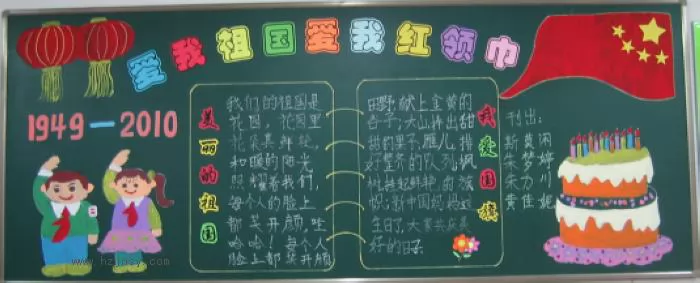 爱我祖国爱我红领巾
1949—2010
美丽的祖国
我们的祖国是
花园,花园里
花朵真鲜艳,
和暖的阳光
照耀着我们,
每个人的脸上
都笑开颜,哇
哈哈!每个人
脸上都笑开颜
田野献上金黄的
谷子;大山捧出甜
甜的果子;雁儿排
好整齐的队列;枫
树挂起鲜艳的
新中国妈妈过
生日了,大家共庆美
好的日子
我爱国旗
刊出:
朱梦婷
朱力川
黄佳妮